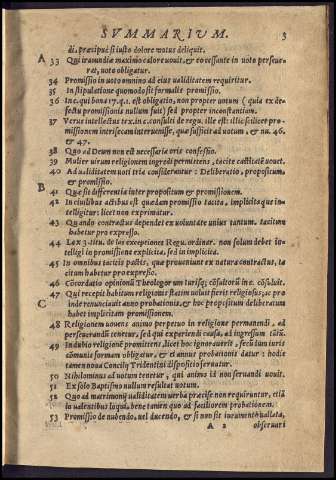 SVMMARIVM. 3
di, præcipuè si iusto dolore motus deliquit.
A 33 Qui iracundiæ maximo calore vouit, & eo cessante in voto perseue-
rat, voto obligatur.
34 Promissio in voto omnino ad eius validitatem requiritur.
35 In stipulatione quomodo sit formalis promissio.
36 In c. qui bona 17. q. 1. est obligatio, non propter votum ( quia ex de-
fectu promissionis nullum fuit) sed propter inconstantiam.
37 Verus intellectus tex. in c. consulti de regu. ille est: illic scilicet pro-
missionem intrinsecam interuenisse, quæ sufficit ad votum, & nu. 46.
& 47.
38 Quo ad Deum non est necessaria oris confessio.
39 Mulier virum religionem ingredi permittens, tacite castitatē vouet.
40 Ad validitatem voti tria considerantur : Deliberatio, propositum,
& promissio.
B 41 Quæ sit differentia inter propositum & promissionem.
42 In ciuilibus actibus est quædam promissio tacita, implicita quæ in-
telligitur: licet non exprimatur.
43 Quando contractus dependet ex voluntate vnius tantum, tacitum
habetur pro expresso.
44 Lex 3. titu. de las excepciones Regu. ordinat. non solum debet in-
telligi in promissione explicita, sed in implicita.
45 In omnibus tacitis pactis, quæ proueniunt ex natura contractus, ta
citum habetur pro expresso.
46 Cōcordatio opinionū Theologorum turisq; cōsultorū in c. cōsuluit.
47 Qui recepit habitum religionis statim voluit fieri religiosus; ac pro
inde renunciauit anno probationis, & hoc propositum deliberatum
habet implicitam promissionem.
C 48 Religionem vouens animo perpetuo in religione permanendi, ad
perseuerandū tenetur, sed qui experiendi causa, ad ingressum tātū.
49 In dubio religionē promittens, licet hoc ignorauerit, secūdum iuris
cōmunis formam obligatur, & ei annus probationis datur : hodie
tamen noua Concilij Tridentini dispositio seruatur.
50 Nihilominus ad votum tenetur, qui animo id non seruandi vouit.
51 Ex solo Baptismo nullum resultat votum.
52 Quo ad matrimonij validitatem verba præcise non requiruntur, etiā
in valentibus loqui, bene tamen quo ad faciliorem probationem.
53 Promissio de nubendo, vel ducendo, & si non sit iuramento vallata,
A 2 obseruari